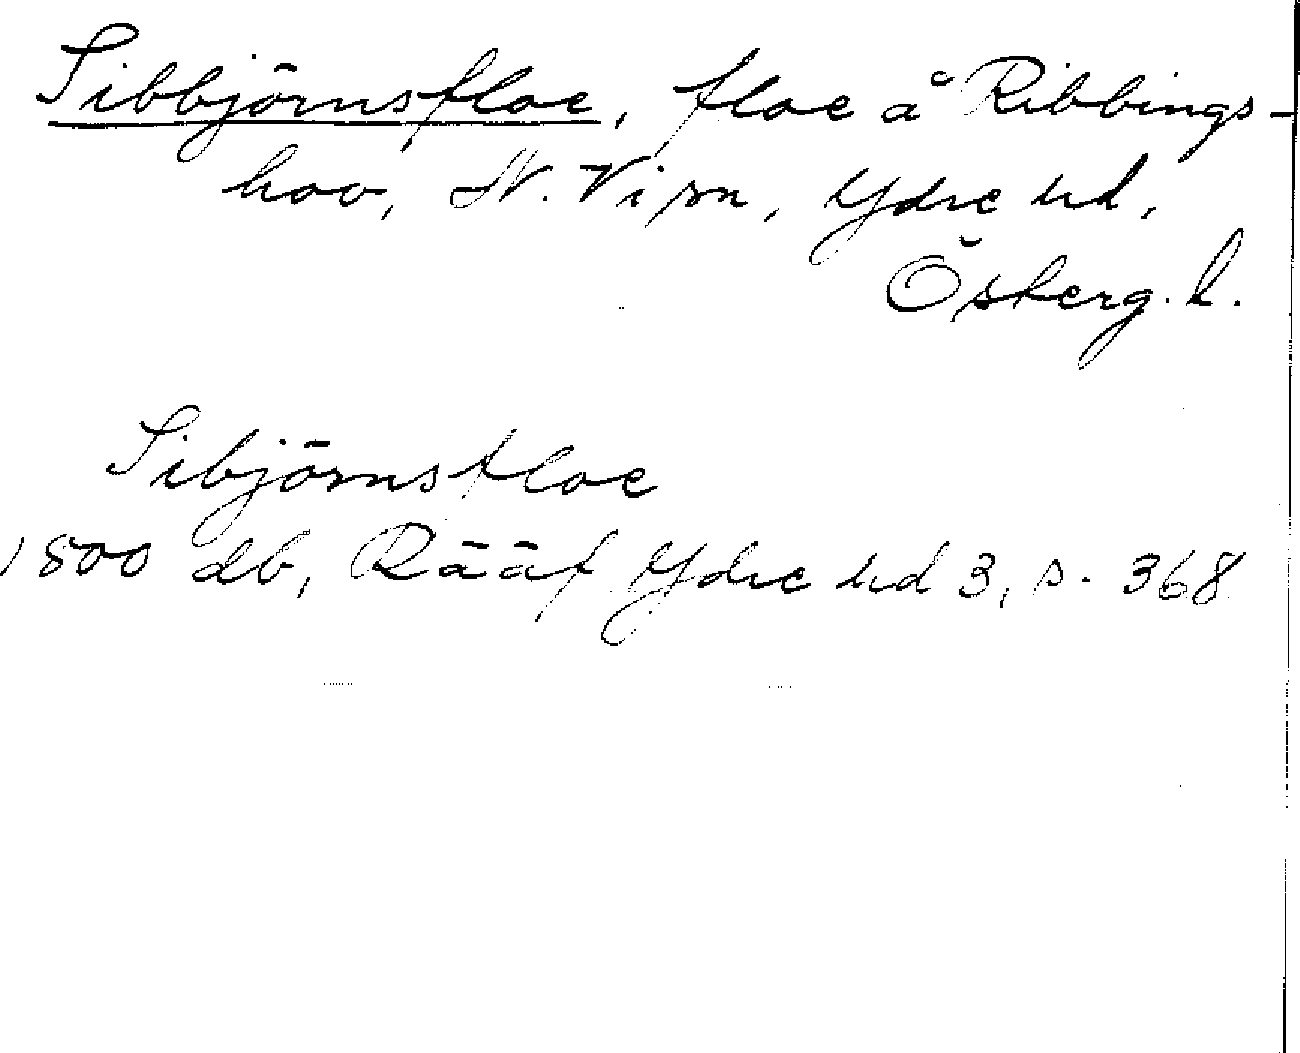 Sibbjörnsfloe, floe å Ribbings-
hov, N. Vi sn, Ydre hd,
Österg. l.
Sibjörnsfloe
1800 db, Rääf Ydre hd 3, s. 368